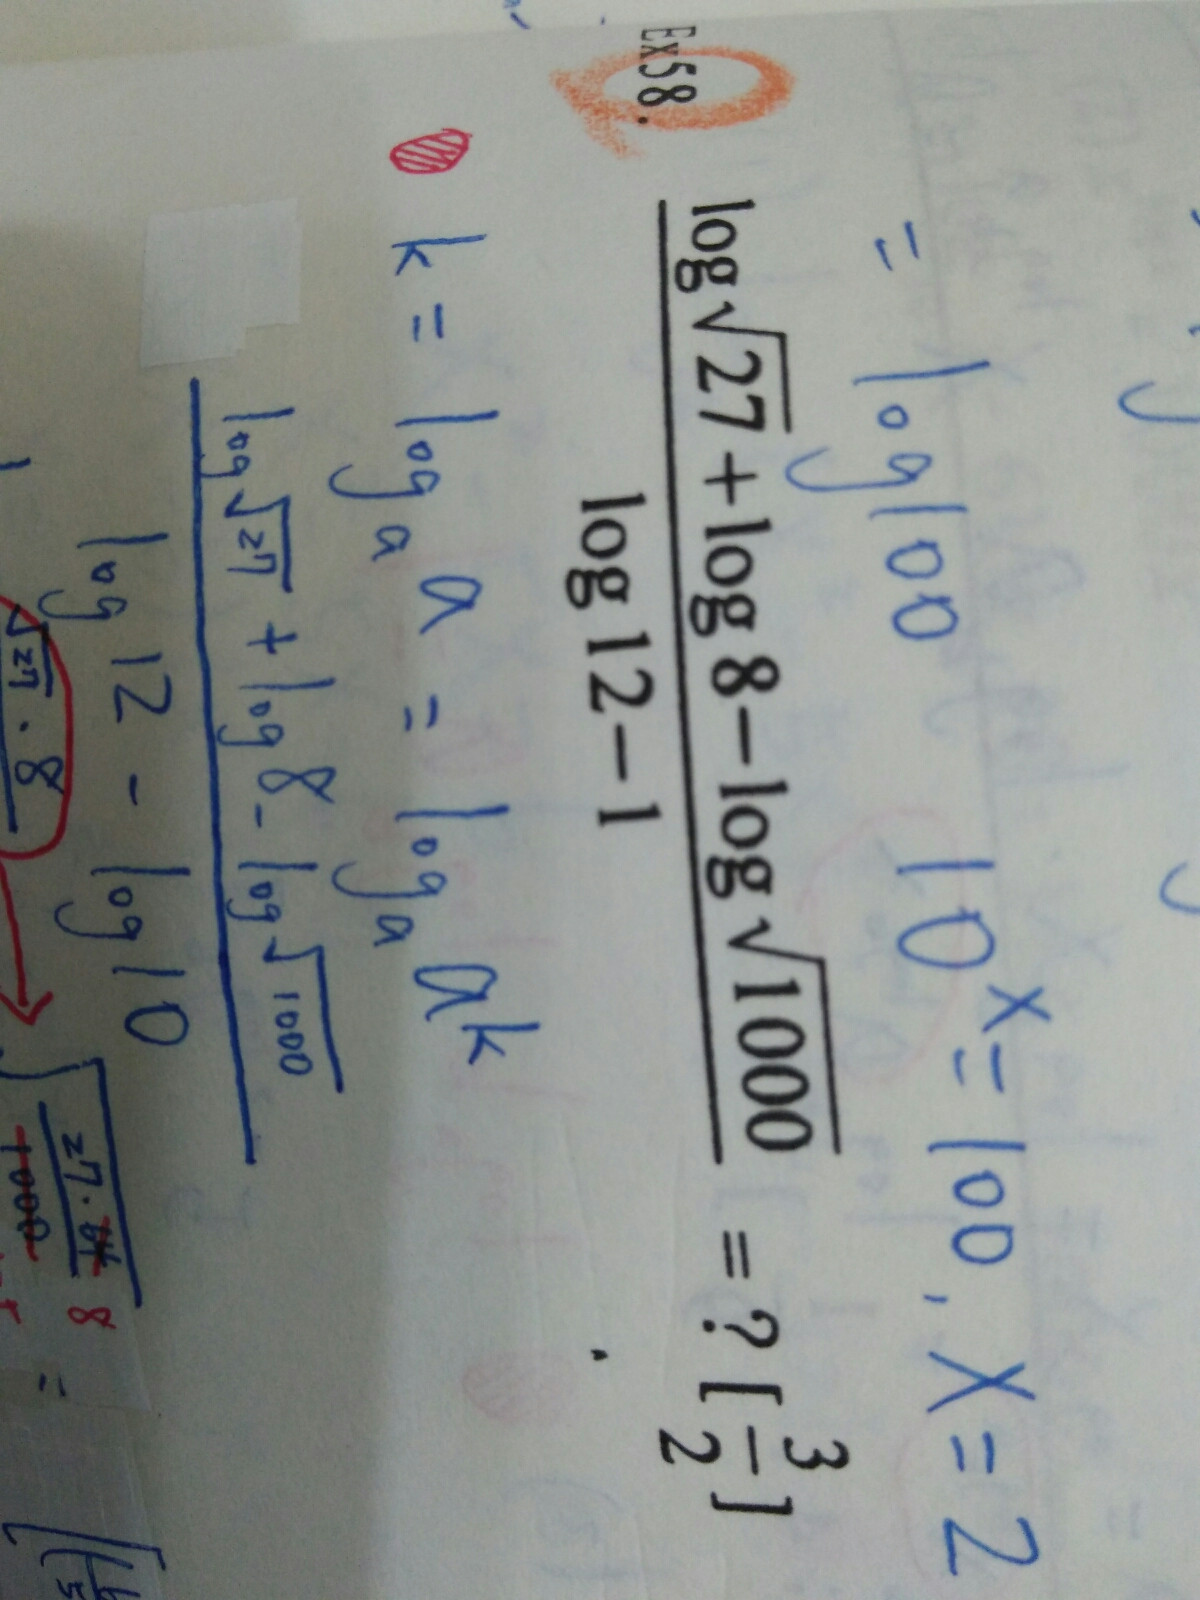 = log100 10^x = 100, x = 2
Ex58. (log√27 + log 8 − log√1000) / (log 12 − 1) = ? [3/2]
k = log_a a = log_a a^k
log√27 + log 8 - log√1000
log 12 - log 10
√27 · 8
√(27·64 8 / 1000) =